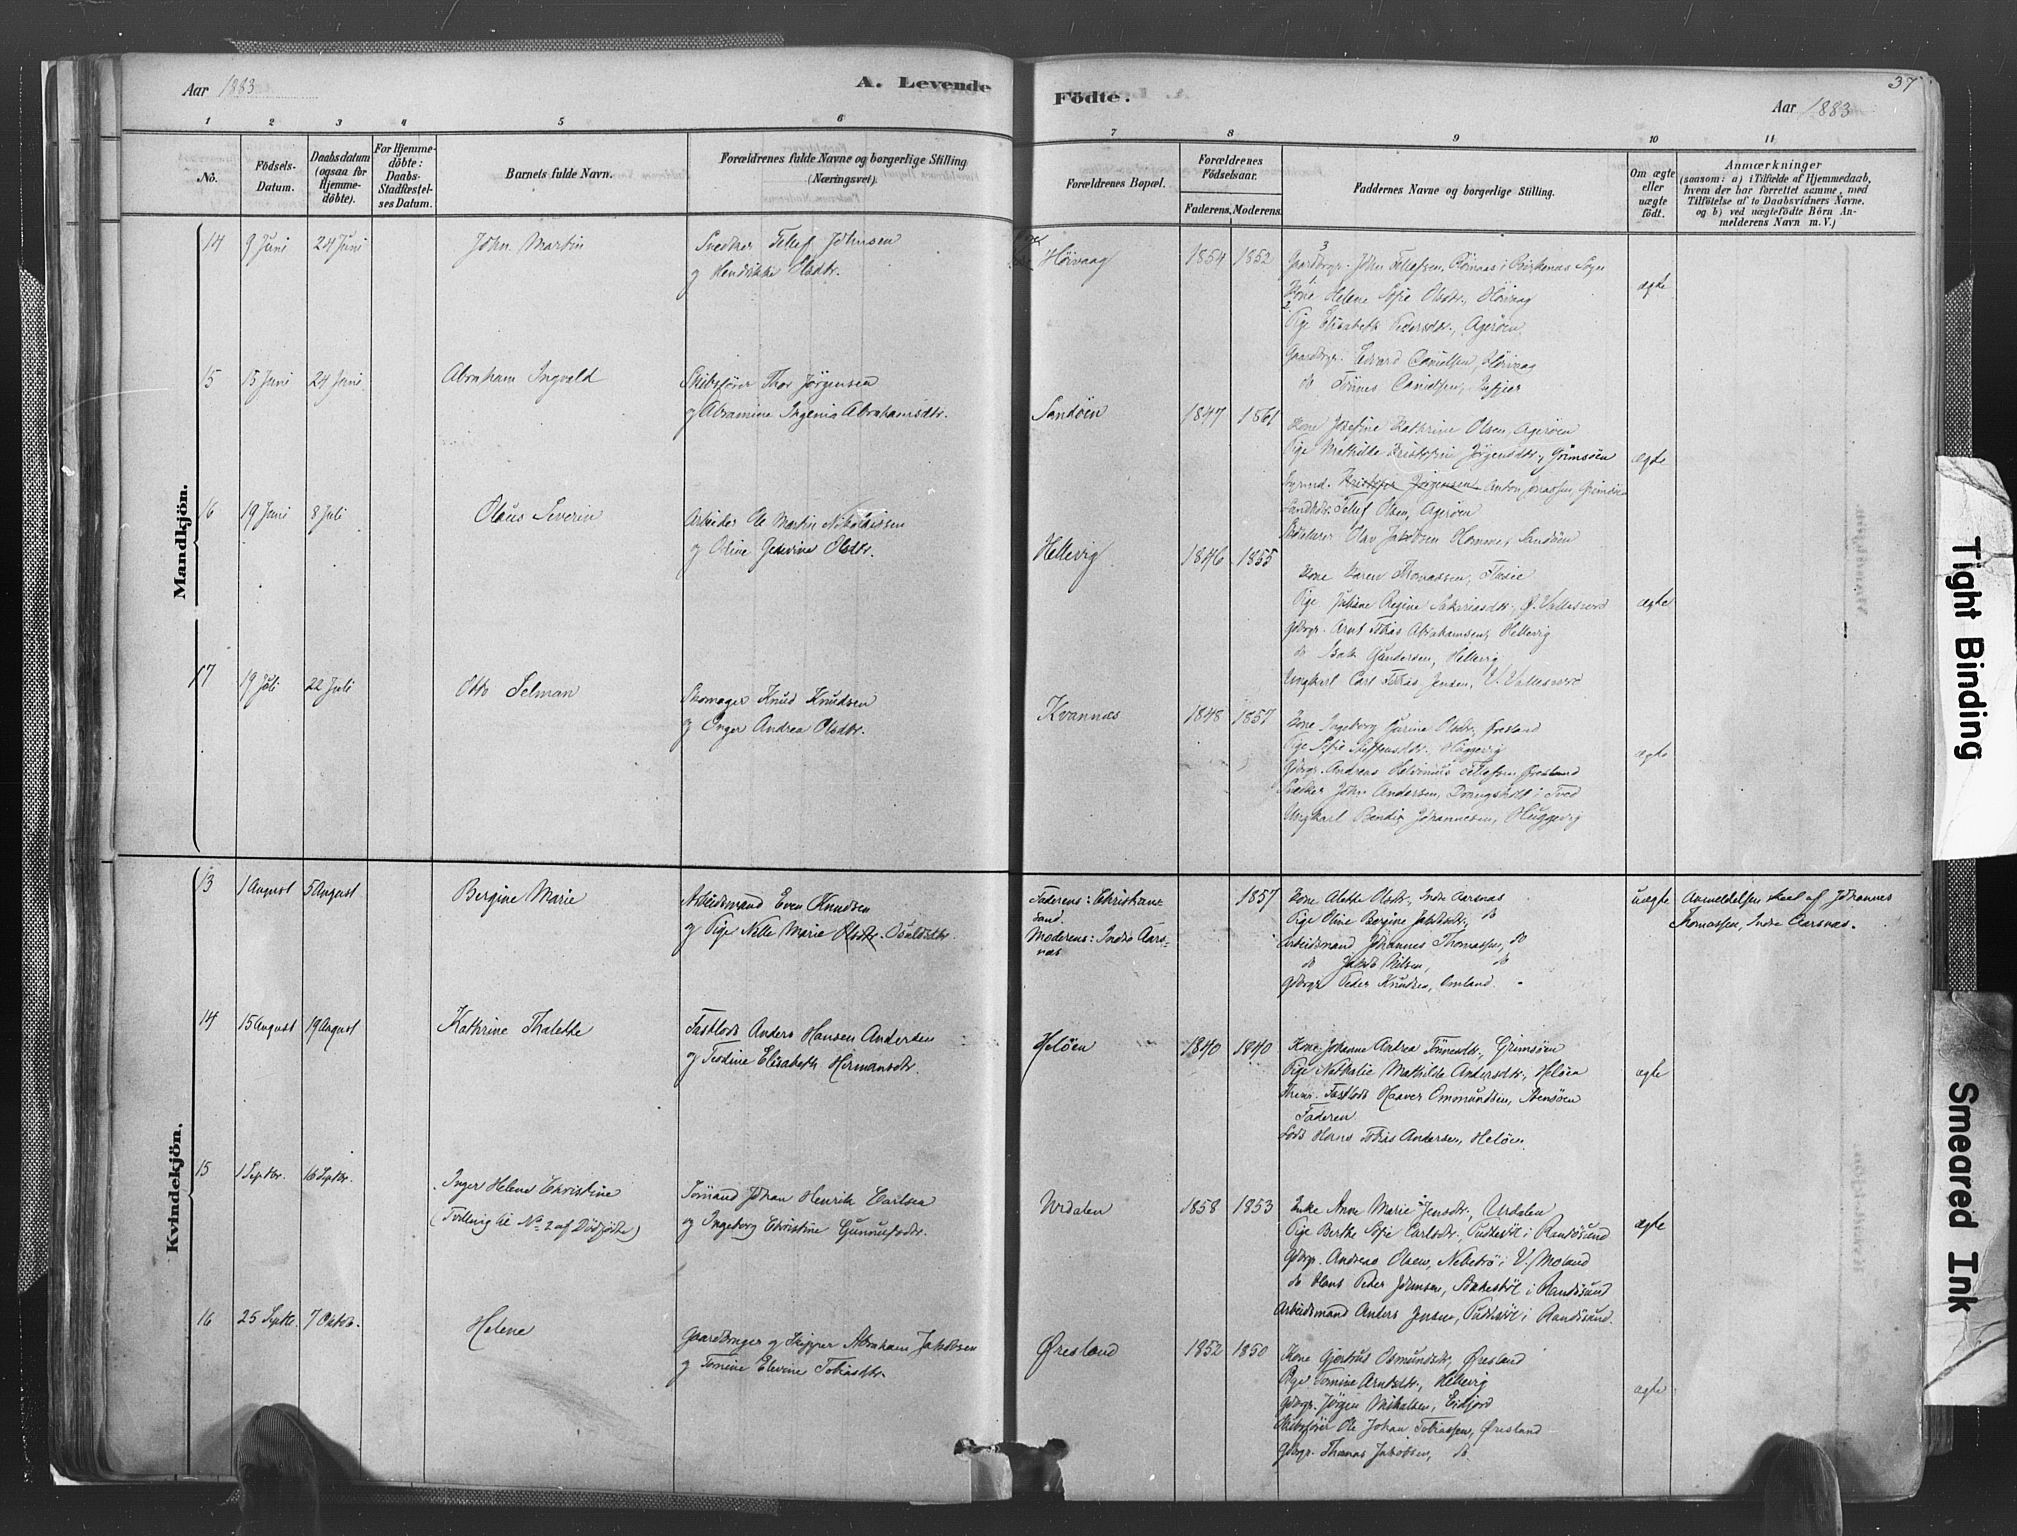 Aar 1883
A. Levende
Födte.
37
Aar 1883
1 2 3 4 5 6 7 8 9 10 11
No.
Födsels-
Datum.
Daabsdatum
(ogsaa for
Hjemme-
döbte).
For Hjemme-
döbte:
Daabs-
Stadfæstel-
ses Datum.
Barnets fulde Navn.
Forældrenes fulde Navne og borgerlige Stilling
(Næringsvei).
Forældrenes Bopæl.
Forældrenes
Födselsaar.
Faderens. Moderens.
Faddernes Navne og borgerlige Stilling.
Om ægte
eller
uægte
födt.
Anmærkninger
(saasom: a) i Tilfælde af Hjemmedaab,
hvem der har forrettet samme, med
Tilföielse af to Daabsvidners Navne.
og b) ved uægtefödte Börn An-
melderens Navn m. V.)
Mandkjön.
14 9 Juni 24 Juni John Martin
Snedker Tellef Johnsen
og Hendikke Olsdtr.
Høivaag 1854 1852
3
Gaardbrgr. John Tellefsen, i Birkenes Sogn
1
Kone Helene Sofie Olsdtr., Høivaag
2
Pige Elisabeth Pedersdtr., Agerøen
Gaardbrgr. Edvard Danielsen, Høivaag
do Tønnes Danielsen,
ægte
15 15 Juni 24 Juni Abraham Ingvald
Skibsfører Thor Jørgensen
og Abramine Ingenia Abrahamsdtr.
Sandøen 1847 1861
Kone Josefine Kathrine Olsen, Agerøen
Pige Mathilde Jørgensdtr., Grimsøen
Kristofer Jørgensen Anton Jonassen, Grimsøen
Tellef Olsen, Agerøen
Olav Jakobsen Homme, Sandøen
ægte
16 19 Juni 8 Juli Olaus Severin
Arbeider Ole Martin Nikolaissen
og Oline Gesevine Olsdtr.
Hellevig 1846 1855
Kone Karen Thomassen,
Pige Juliane Regine Sakariasdtr., Ø. Vallesverd
Gdbrgr. Arnt Tobias Abrahamsen, Hellevig
do Isak Gundersen, Hellevig
Ungkarl Carl Tobias Jensen, V. Vallesverd
ægte
17 19 Juli 22 Juli Otto Selman
Skomager Knud Knudsen
og Andrea Olsdtr.
Kvannes 1848 1857
Kone Ingeborg Gurine Olsdtr., Øresland
Pige Sofie Steffensdtr., Huggevig
Gdbrgr. Andreas Tellefsen Øresland
Snedker John Andersen, i Tved
Ungkarl Bendix Johannesen, Huggevig
ægte
Kvindekjön.
13 1 August 5 August Bergine Marie
Arbeidsmand Even Knudsen
og Pige Nelle Marie Olsdtr. Osuldsdtr.
Faderens: Christian-
sand.
Moderens: Indre Aars-
næs
1857
Kone Alette Olsdtr., Indre Aarsnæs
Pige Oline Bergine Jakobsdtr., do
Arbeidsmand Johannes Thomassen, do
do Jakob Nilsen, do
Gdbrgr Peder Knudsen, Omland.
uægte
Anmeldelsen skeet af Johannes
Thomassen, Indre Aarsnæs.
14 15 August 19 August Kathrine Thalette
Fastlods Anders Hansen Andersen
og Tesdine Elisabeth Hermansdtr.
Heløen 1840 1840
Kone Johanne Andrea Tønnesdtr., Grimsøen
Pige Nathalie Mathilde Andersdtr., Heløen
Fastlods Haaver Omundsen, Stensøen
Faderen
Lods Hans Tobias Andersen, Heløen
ægte
15 1 Septbr. 16 Septbr. Inger Helene Christine
(Tvilling til No 2 af Dødfødte)
Sømand Johan Henrik Carlsen
og Ingeborg Christine Gunnufsdtr.
Urdalen 1858 1853
Enke Anne Marie Jensdtr., Urdalen
Pige Berthe Sofie Carlsdtr., i Randøsund
Gdbrgr. Andreas Olsen, i V. Moland
do Hans Peder Johnsen, i Randøsund
Arbeidsmand Anders Jensen, i Randøsund.
ægte
16 25 Septbr. 7 Oktbr. Helene
Gaardbruger og Skipper Abraham Jakobsen
og Tomine Elevine Tobiasdtr.
Øresland 1852 1850
Kone Gjertrud Osmundsdtr., Øresland
Pige Tomine Arntsdtr., Hellevig
Gdbrgr. Jørgen Mikalsen, Eidjord
Skibsfører Ole Johan Tobiassen, Øresland
Gdbrgr. Thomas Jakobsen, do
ægte
Tight Binding
Smeared Ink